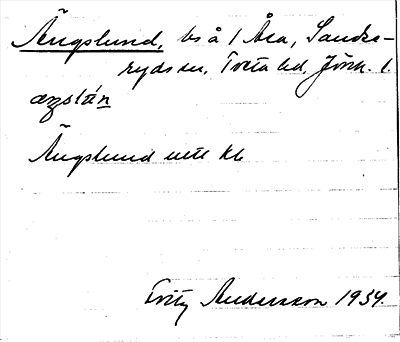 Ängslund, bs å 1 Åsa, Sands-
ryds sn, Tveta hd, Jönk. l.
Ängslund utt kb
Fritz Andersson 1934.